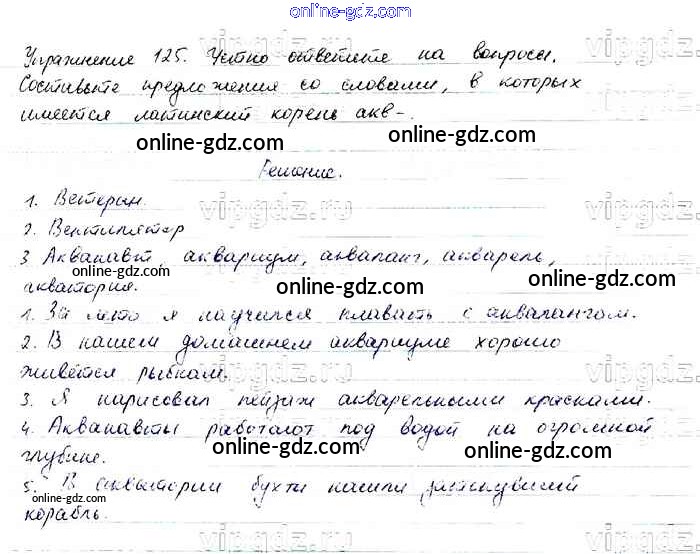 online-gdz.com
Упражнение 125. Устно ответьте на вопросы.
online-gdz.com
Составьте предложения со словами, в которых
имеется латинский корень акв-.
online-gdz.com online-gdz.com
Решение.
1. Ветеран. vipgdz.ru vipgdz.ru
2. Вентилятор
3 Акванавт, аквариум, акваланг, акварель,
online-gdz.com online-gdz.com online-gdz.com
акватория.
1. За лето я научился плавать с аквалангом.
vipgdz.ru vipgdz.ru
2. В нашем домашнем аквариуме хорошо
живётся рыбкам.
3. Я нарисовал пейзаж акварельными красками.
4. Акванавты работают под водой на огромной
online-gdz.com online-gdz.com
глубине.
5. В акватории бухты нашли затонувший
vipgdz.ru vipgdz.ru
корабль.
online-gdz.com